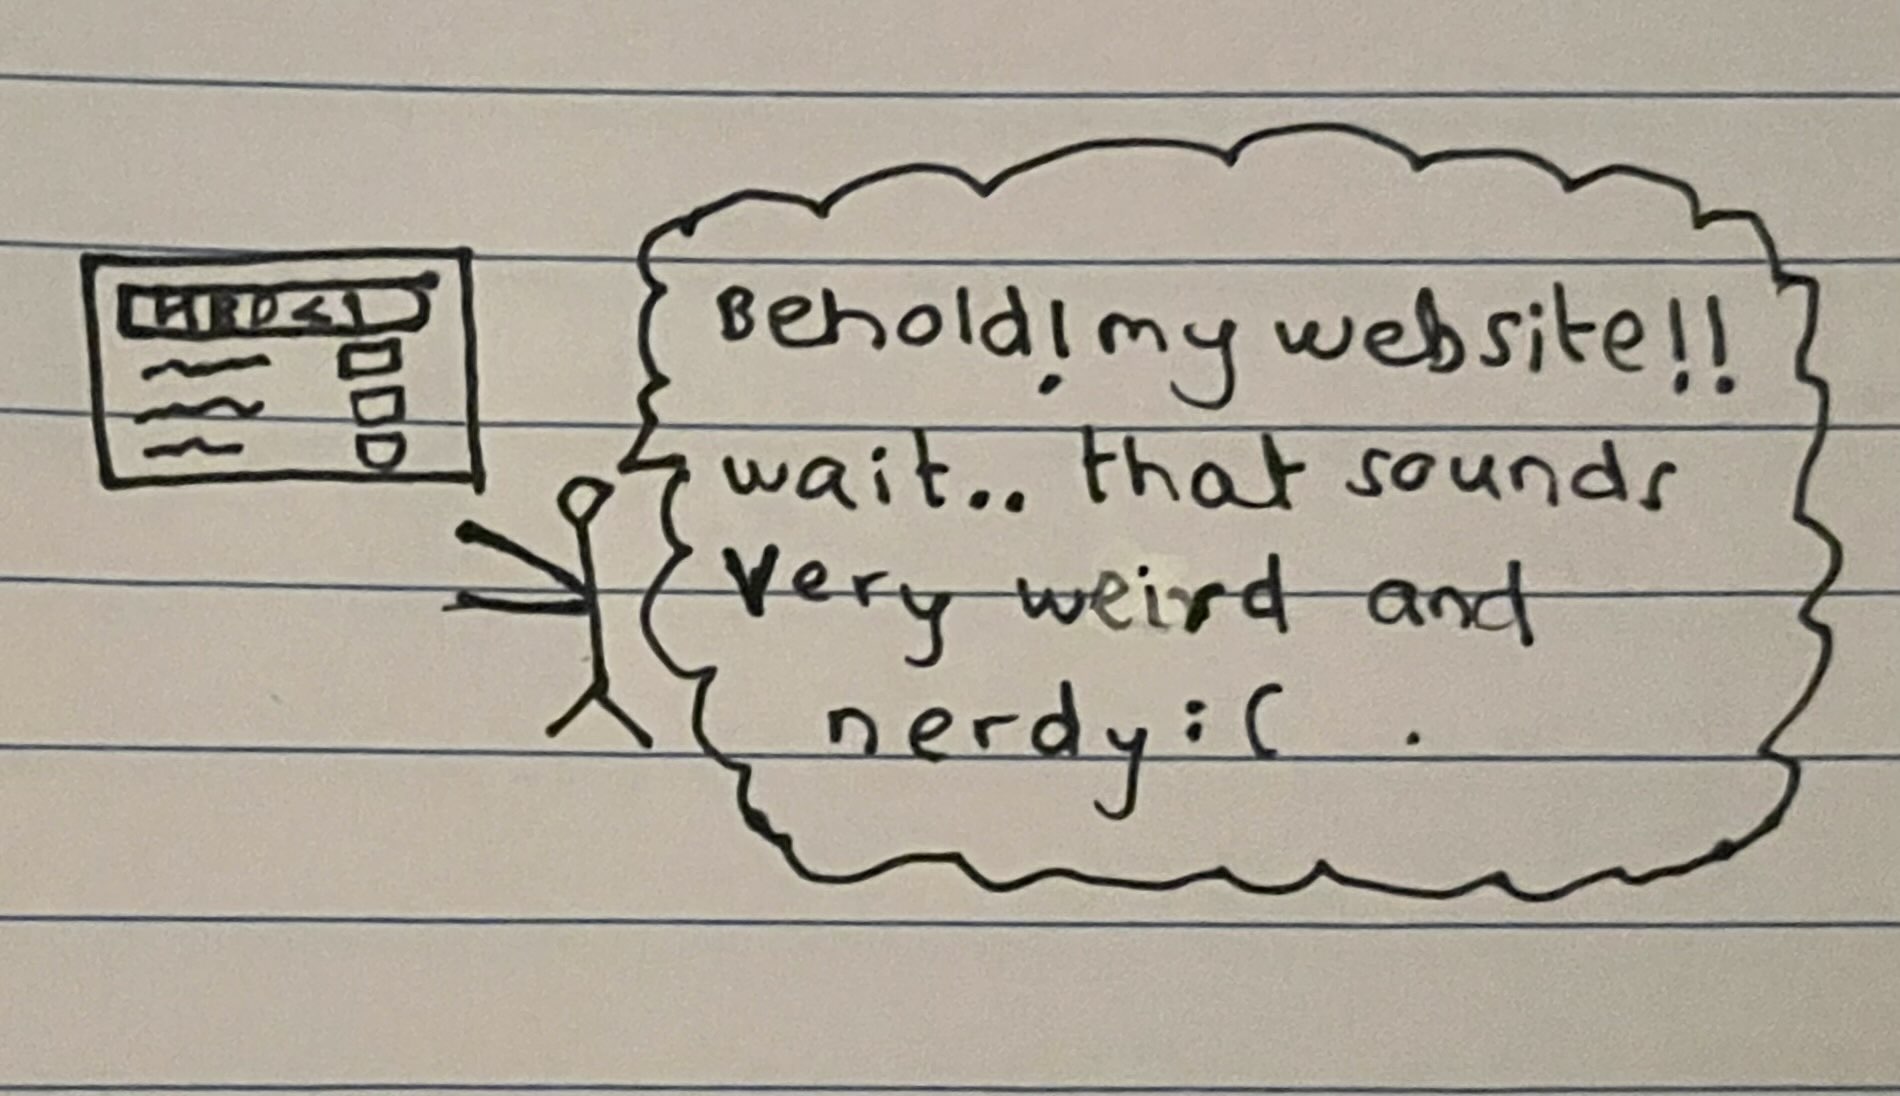 Behold! my website!!
wait.. that sounds
very weird and
nerdy :( .